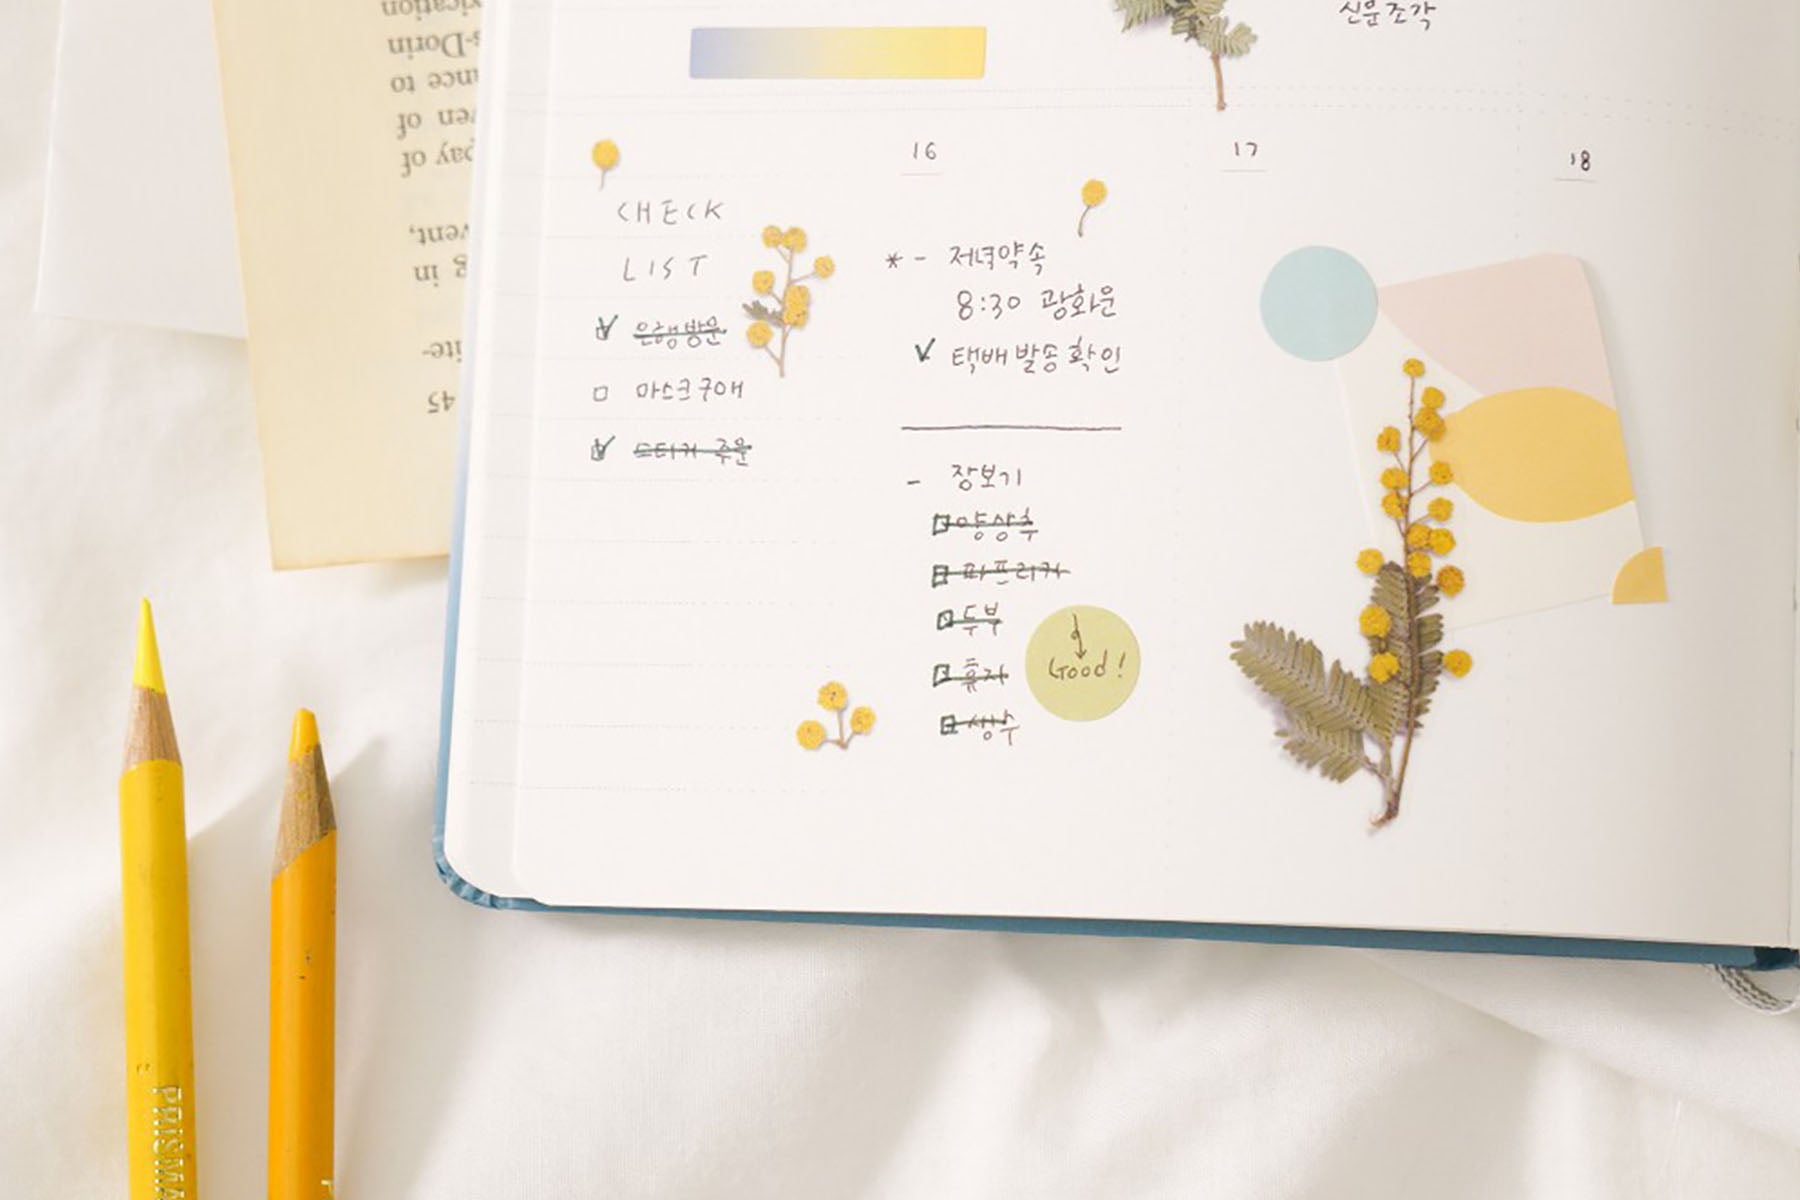 xication
s-Dorin
ance to
ven of
pay of
vent,
g in
ite-
45
신문조각
16
17
18
CHECK
LIST
은행방문
마스크구매
스티커 주문
* - 저녁약속
8:30 광화문
택배발송확인
- 장보기
양상추
파프리카
두부
휴지
생수
Good!
PRISMA